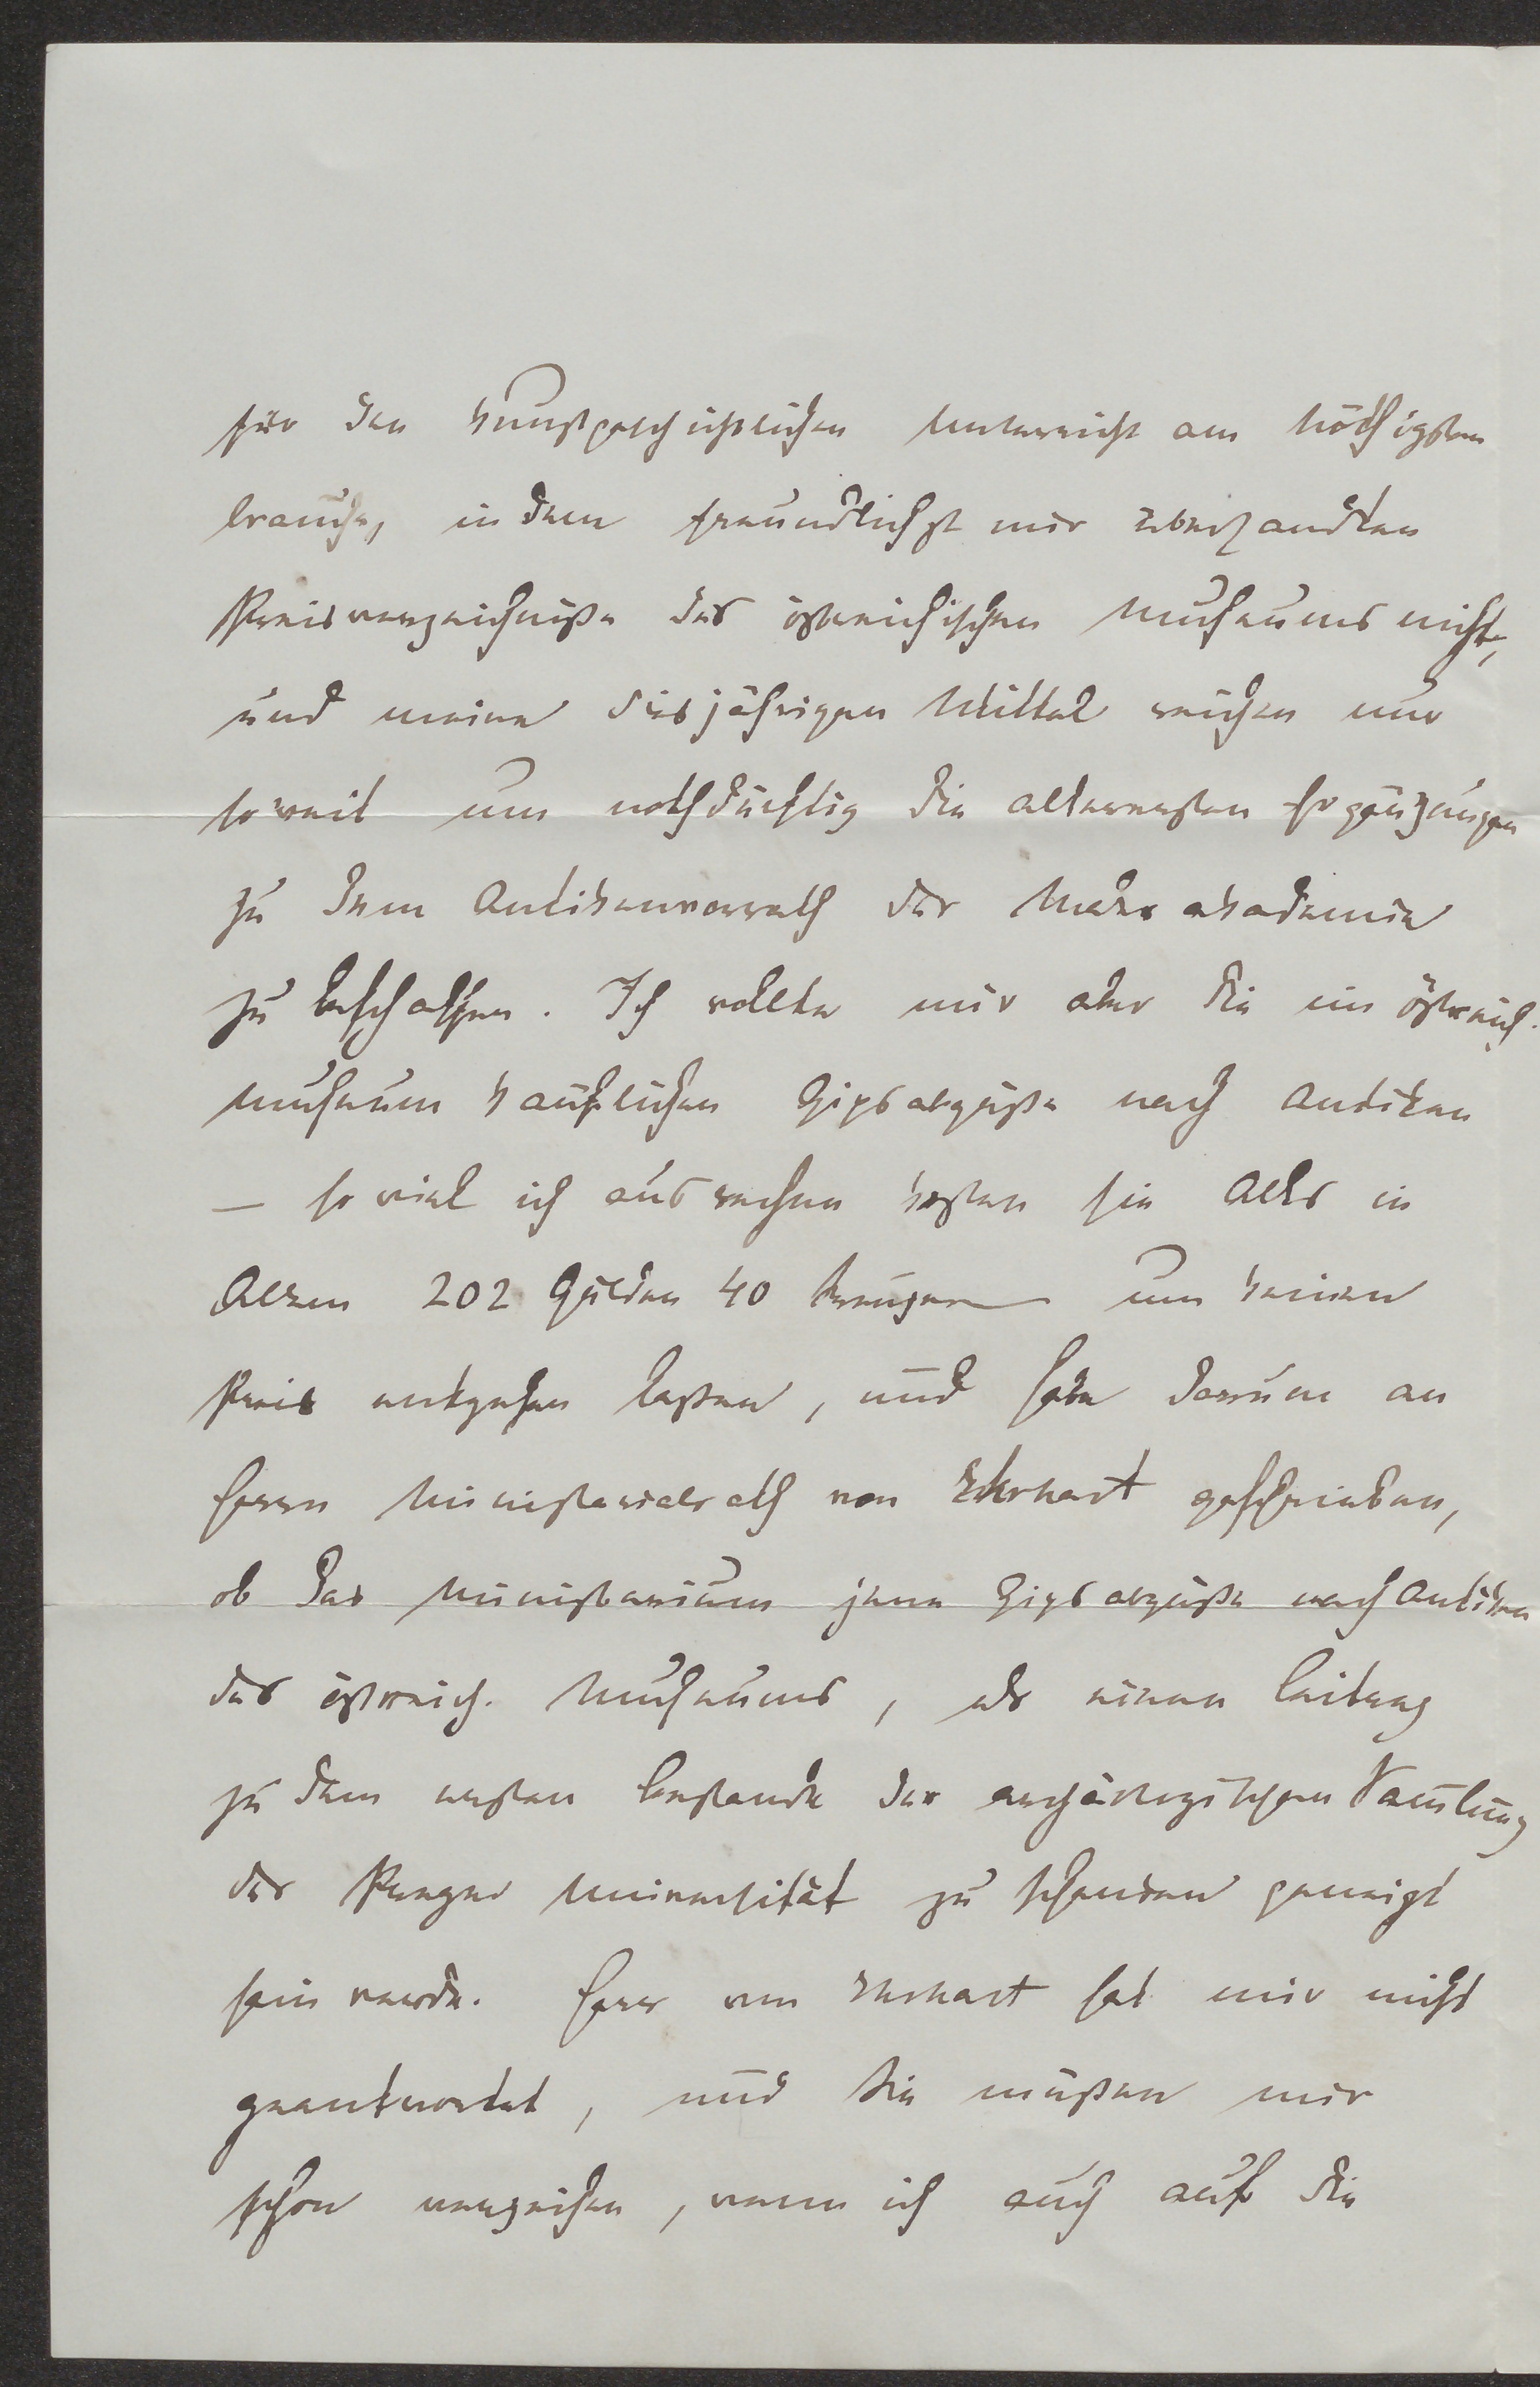 für den kunstgeschichtlichen Unterricht am nöthigsten
brauche, in dem freundlichst mir übersandten
Preisverzeichniße des östreichischen Museums nicht,
und meine diesjährigen Mittel reichen nur
so weit um nothdürftig die allerersten Ergänzungen
zu dem Antikenvorrath der Maler akademie
zu beschaffen. Ich wollte mir aber die im östreich.
Museum käuflichen Gipsabgüße nach Antiken
— so viel ich ausrechne kosten sie Alles in
Allem 202 Gulden 40 Kreuzer — um keinen
Preis entgehen laßen, und habe darum an
Herrn Ministerialrath von Ekhart geschrieben,
ob das Ministerium jene Gipsabgüße nach Antiken
des östreich. Museums, als einen Beitrag
zu dem ersten Bestande der archäologischen Samlung
der Prager Universität zu schenken geneigt
sein werde. Herr von Ekhart hat mir nicht
geantwortet, und Sie müßen mir
schon verzeihen, wenn ich auch auf die